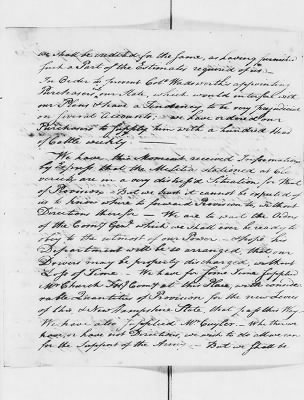 we shall be credited for the same, as having furnished
such a Part of the Estimate required of us —
In Order to prevent Colo Wadsworths appointing
Purchasers in our State, which would interfere with
our Plans & have a Tendency to be very prejudicial
on several Accounts, we have ordered our
Purchasers to supply him with a hundred Head
of Cattle weekly —
We have this Moment received Information
by Express that the Militia stationed at
are in a very distressed Situation, for Want
of Provision — But we trust it cannot be expected of
us to know where to forward Provision to, without
Directions therefor — We are to wait the Orders
of the Comy Genl which we shall ever be ready to
obey to the utmost of our Power — hope his
Department will be so arranged, that our
Drovers may be properly discharged, without
Loss of Time — We have for some Time supplied
Mr Church at this Place, with conside
rable Quantities of Provision, for the new Levies
of this & New Hampshire State, that pass this Way
We have also supplied Mr Cuyler — Whether we
have, or have not Directions, we wish to do all we can
for the Support of the Army — But we shall be